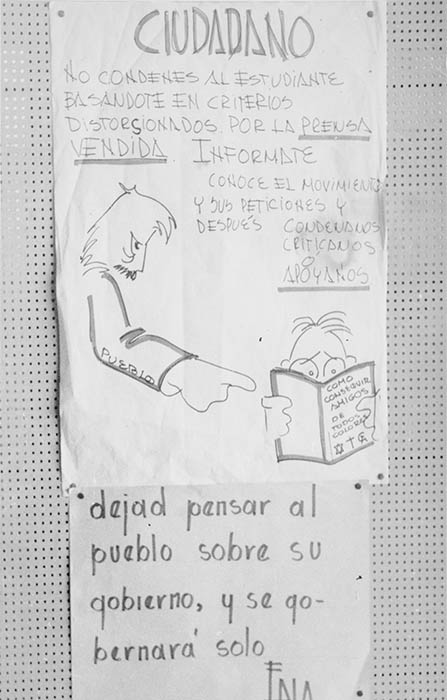 CIUDADANO
NO CONDENES AL ESTUDIANTE
BASÁNDOTE EN CRITERIOS
DISTORSIONADOS POR LA PRENSA
VENDIDA. INFORMATE
CONOCE EL MOVIMIENTO
Y SUS PETICIONES Y
DESPUÉS CONDENANOS
CRITICANOS
O
APÓYANOS
PUEBLO
COMO
CONSEGUIR
AMIGOS
DE
TODOS
COLORES
dejad pensar al
pueblo sobre su
gobierno, y se go-
bernará solo
ENA